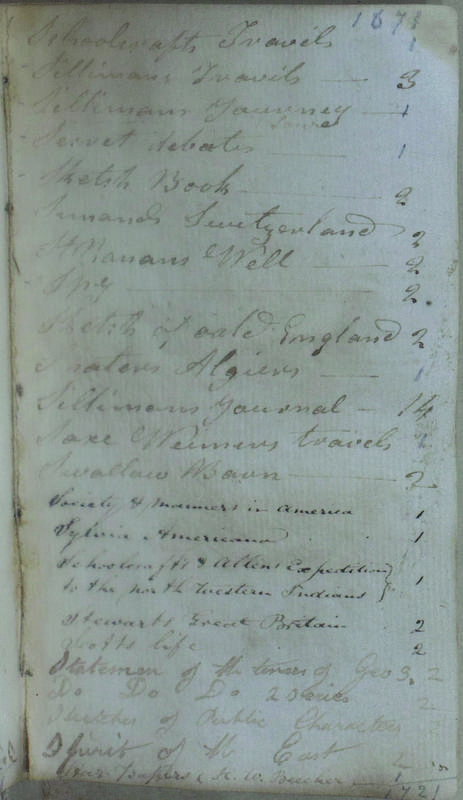 1671
Schoolcrafts Travels 1
Sillimans Travels 3
Sillimans Journey 1
Secret debates 1
Sketch Book 2
Simands Switzerland 2
St Ronans Well 2
Spy 2
Sketch of old England 2
Shalers Algiers 1
Sillimans Journal 14
Saxe Weimers travels 2
Swallow Barn 2
Society & manners in America 1
Sylvia Americana 1
Schoolcrafts & Allens Expedition
to the north Western Indians } 1
Stewarts Great Britain 2
Scotts life 2
Statesmen of the times of Geo 3. 2
Do Do Do 2 Series 2
Sketches of Public Characters
Spirit of the East 2
Star Papers ( H. W. Beecher 1
1721